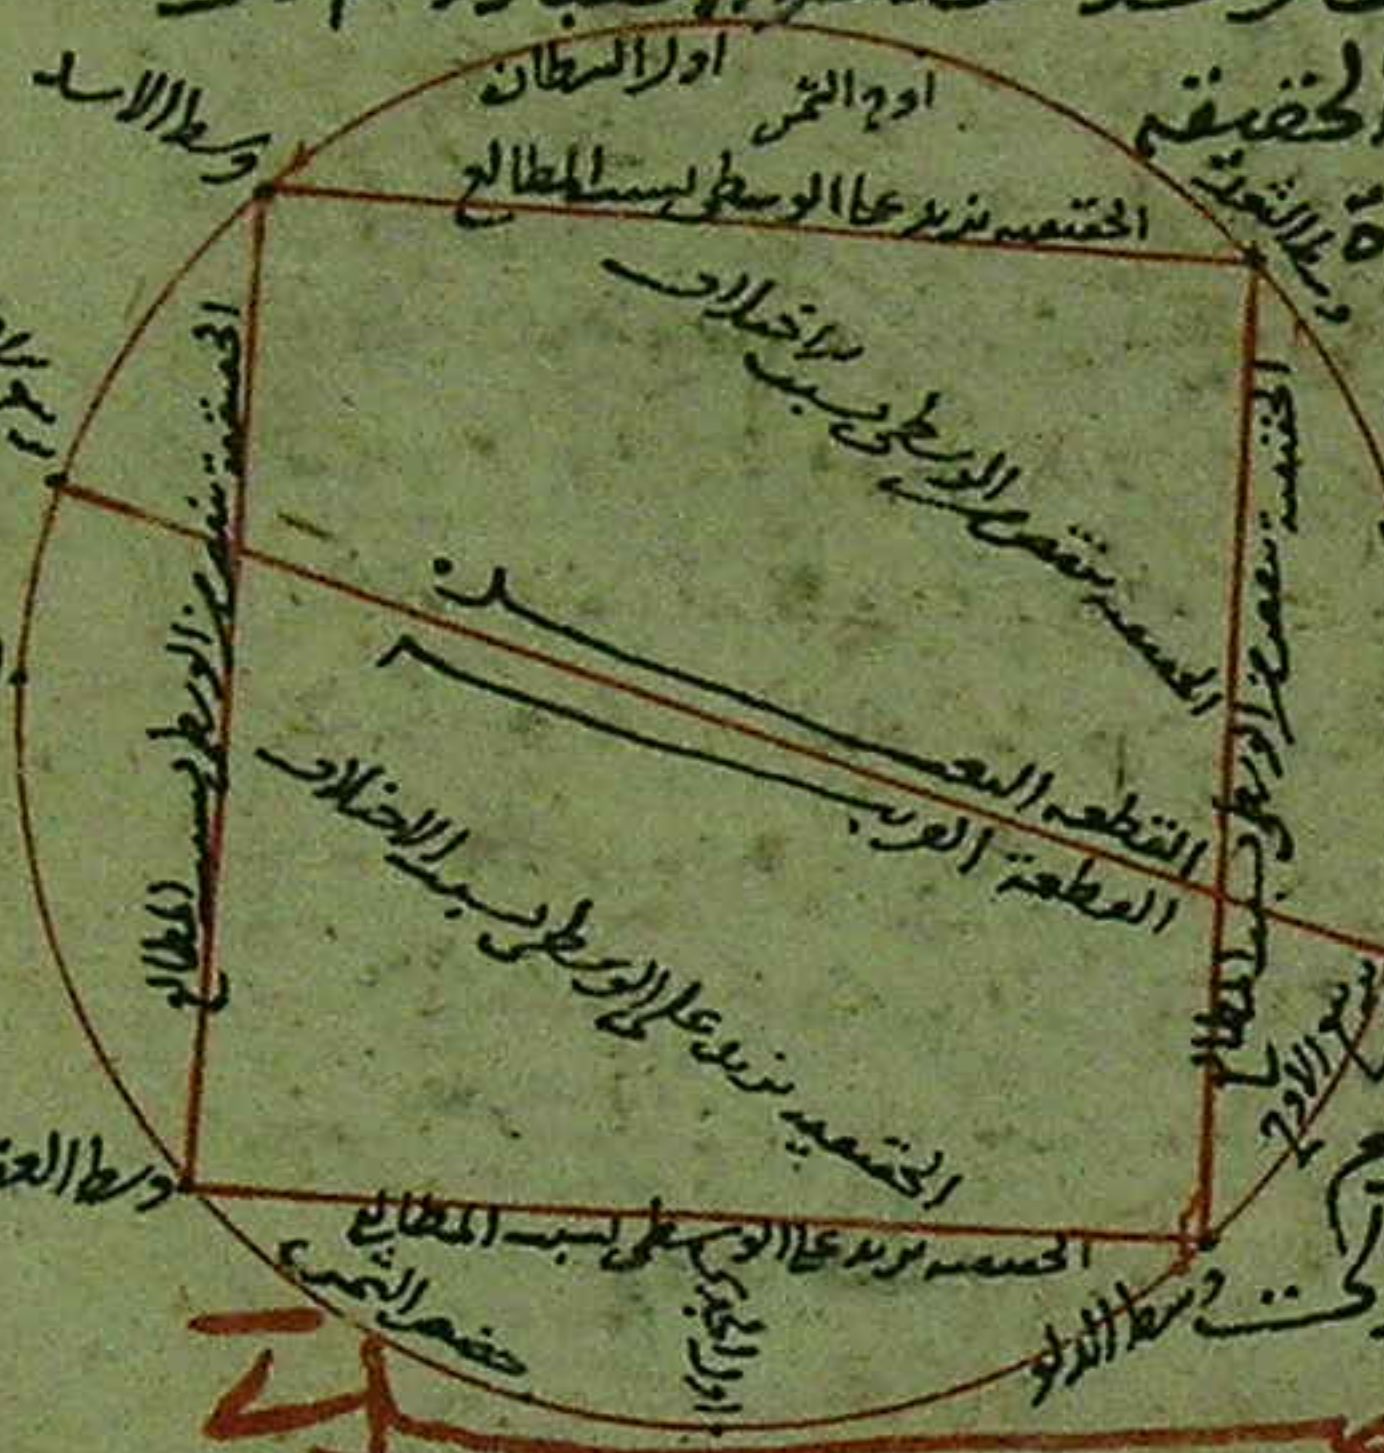 الحقيقة
اول السرطان
اوج الشمس
وسط الاسد
وسط الثور
الحقيقية تزيد على الوسطى بسبب المطالع
الحقيقية تنقص من الوسطى بسبب المطالع
الحقيقية تنقص من الوسطى بسبب الاختلاف
الحقيقية تنقص من الوسطى بسبب المطالع
القطعة البعيدة
القطعة القريبة
الحقيقية تزيد على الوسطى بسبب الاختلاف
الاوج
وسط
الحقيقية تزيد على الوسطى بسبب المطالع
حضيض الشمس
اول الجدي
وسط الدلو